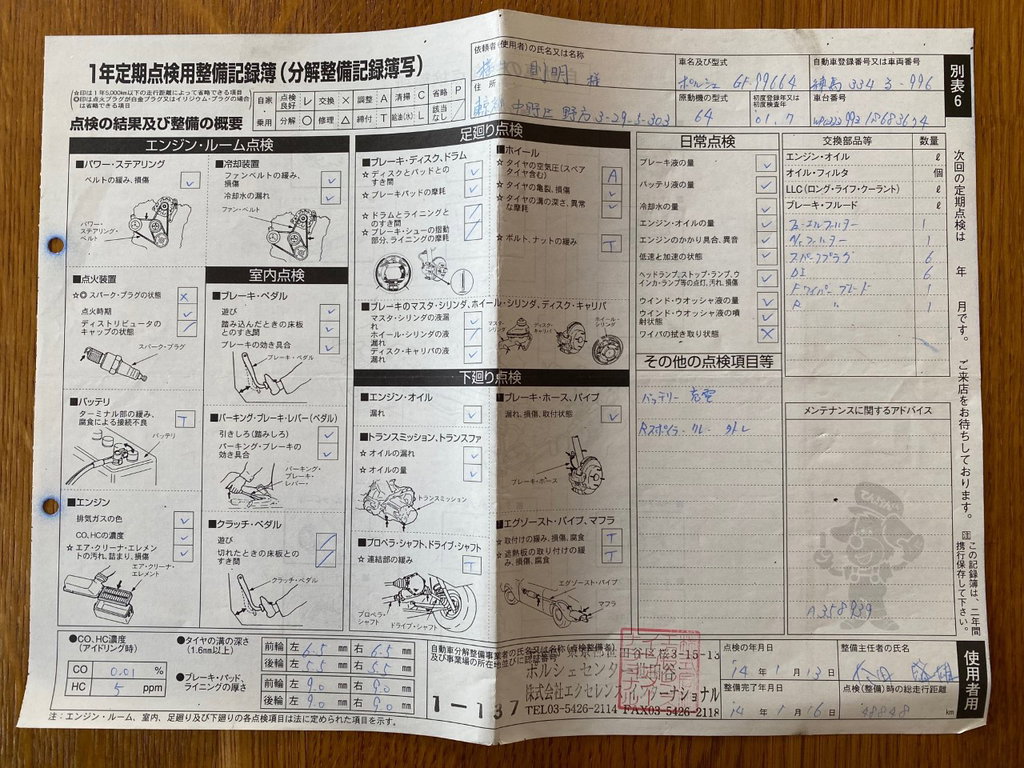 1年定期点検用整備記録簿（分解整備記録簿写）
※印は1年5,000km以下の走行距離によって省略できる項目
◎印は点火プラグが白金プラグ又はイリジウム・プラグの場合は省略できる項目
自家
乗用
点検良好 レ 交換 × 調整 A 清掃 C 省略 P
分解 ○ 修理 △ 締付 T 給油(水) L 該当なし ／
依頼者(使用者)の氏名又は名称
様
住所
中野区
3-29-5-303
車名及び型式
ポルシェ GF-99664
自動車登録番号又は車両番号
練馬 334 3-996
原動機の型式
64
初度登録年又は初度検査年
01.7
車台番号
別表6
点検の結果及び整備の概要
エンジン・ルーム点検
■パワー・ステアリング
ベルトの緩み、損傷 レ
パワー・ステアリング・ベルト
■冷却装置
ファンベルトの緩み、損傷 レ
冷却水の漏れ レ
ファン・ベルト
■点火装置
☆◎ スパーク・プラグの状態 ×
点火時期 レ
ディストリビュータのキャップの状態 ／
スパーク・プラグ
■バッテリ
ターミナル部の緩み、腐食による接続不良 T
バッテリ
■エンジン
排気ガスの色 レ
CO、HCの濃度 レ
☆ エア・クリーナ・エレメントの汚れ、詰まり、損傷 レ
エア・クリーナ・エレメント
室内点検
■ブレーキ・ペダル
遊び レ
踏み込んだときの床板とのすき間 レ
ブレーキの効き具合 レ
ブレーキ・ペダル
■パーキング・ブレーキ・レバー(ペダル)
引きしろ(踏みしろ) レ
パーキング・ブレーキの効き具合 レ
パーキング・ブレーキ・レバー
■クラッチ・ペダル
遊び ／
切れたときの床板とのすき間 ／
クラッチ・ペダル
足廻り点検
■ブレーキ・ディスク、ドラム
☆ ディスクとパッドとのすき間 レ
☆ ブレーキパッドの摩耗 レ
☆ ドラムとライニングとのすき間 ／
☆ ブレーキ・シューの摺動部分、ライニングの摩耗 ／
■ホイール
☆ タイヤの空気圧(スペアタイヤ含む) A
☆ タイヤの亀裂、損傷 レ
☆ タイヤの溝の深さ、異常な摩耗 レ
☆ ボルト、ナットの緩み T
■ブレーキのマスタ・シリンダ、ホイール・シリンダ、ディスク・キャリパ
マスタ・シリンダの液漏れ レ
ホイール・シリンダの液漏れ
ディスク・キャリパの液漏れ レ
マスタ・シリンダ
ディスク・キャリパ
ホイール・シリンダ
下廻り点検
■エンジン・オイル
漏れ レ
■トランスミッション、トランスファ
☆ オイルの漏れ レ
☆ オイルの量 レ
トランスミッション
■プロペラ・シャフト、ドライブ・シャフト
☆ 連結部の緩み T
プロペラ・シャフト
ドライブ・シャフト
■ブレーキ・ホース、パイプ
漏れ、損傷、取付状態 レ
ブレーキ・ホース
■エグゾースト・パイプ、マフラ
☆ 取付けの緩み、損傷、腐食 T
☆ 遮熱板の取り付けの緩み、損傷、腐食 T
エグゾースト・パイプ
マフラ
日常点検
ブレーキ液の量 レ
バッテリ液の量 レ
冷却水の量 レ
エンジン・オイルの量 レ
エンジンのかかり具合、異音 レ
低速と加速の状態 レ
ヘッドランプ、ストップ・ランプ、ウインカ・ランプ等の点灯、汚れ、損傷 レ
ウインド・ウオッシャ液の量 レ
ウインド・ウオッシャ液の噴射状態 レ
ワイパの拭き取り状態 ×
その他の点検項目等
バッテリー 充電
交換部品等 数量
エンジン・オイル ℓ
オイル・フィルタ 個
LLC(ロング・ライフ・クーラント) ℓ
ブレーキ・フルード ℓ
フューエルフィルター 1
フィルター 1
スパークプラグ 6
6
Fワイパーブレード 1
R 〃 1
メンテナンスに関するアドバイス
A.358939
次回の定期点検は 年 月です。 ご来店をお待ちしております。
注 この記録簿は、二年間携行保存して下さい。
使用者用
●CO、HC濃度(アイドリング時)
CO 0.01 %
HC 5 ppm
●タイヤの溝の深さ(1.6mm以上)
前輪 左 6.5 mm 右 6.5 mm
後輪 左 5.5 mm 右 5.5 mm
●ブレーキ・パッド、ライニングの厚さ
前輪 左 9.0 mm 右 9.0 mm
後輪 左 9.0 mm 右 9.0 mm
自動車分解整備事業者の氏名又は名称(点検整備)及び事業場の所在地並びに認証番号
1-137
ポルシェセンター
株式会社エクセレンスインターナショナル
TEL03-5426-2114 FAX03-5426-2118
点検の年月日
'14 年 1 月 13 日
整備主任者の氏名
整備完了年月日
'14 年 1 月 16 日
点検(整備)時の総走行距離
48848 km
注：エンジン・ルーム、室内、足廻り及び下廻りの各点検項目は法に定められた項目を示す。